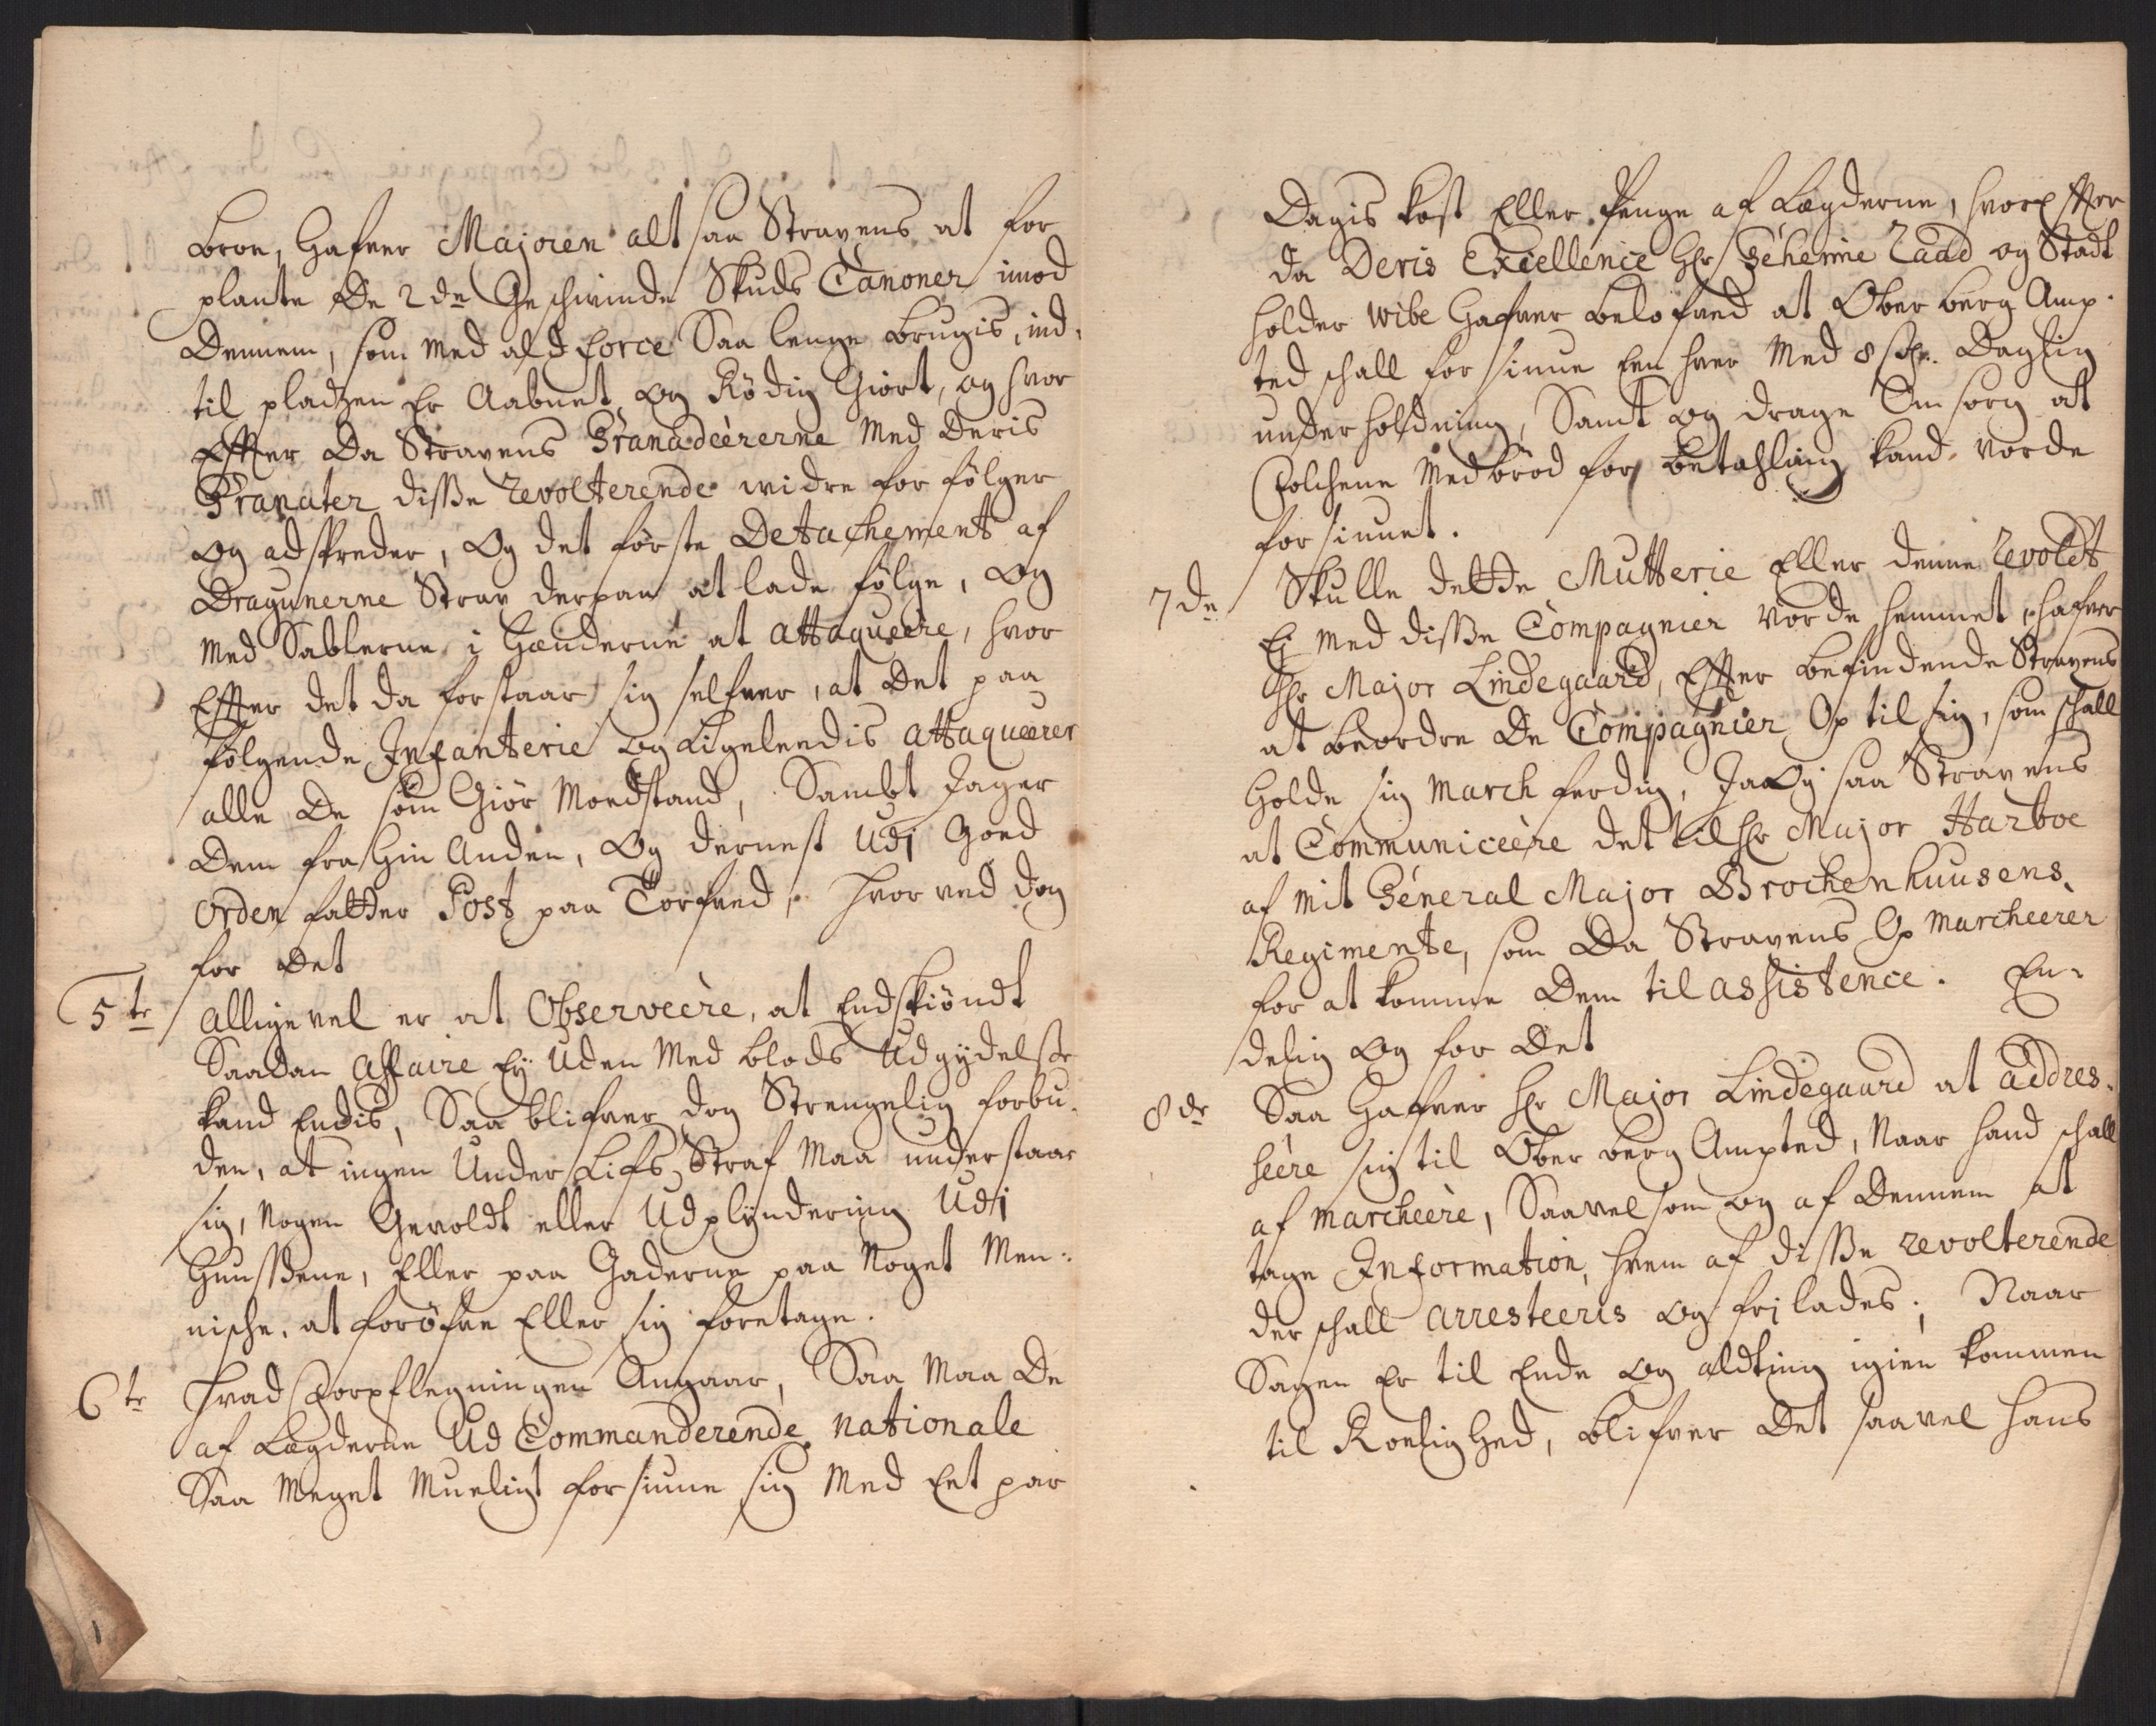 broe, Hafuer Majoren alt saa Stravens at for
plante De 2de Geschwinde Skuds Canoner imod
Dennem, som med ald force Saa lenge brugis, ind-
til pladzen Er Aabnet og Rödig Giort, og hvor
Effter Da Stravens Granadeèrerne med Deris
Granater disse revolterende widre for fölger
og adspreder, Og det förste Detachement af
Dragunerne Strax derpaa at lade fölge, og
med Sablerne i Hænderne at attaqueère, hvor
Effter det da forstaar sig selfuer, at Det paa
fölgende Infanterie og Ligeleedis attaqueerer
alle De som Giör Moedstand, Sambt Jager
Dem fra Hin Anden, Og dernest Udj Goed
Orden fatter Post paa Torfued, hvor ved dog
for Det
5te alligevel er at Observeère, at Endskiöndt
Saadan affaire Ey Uden Med blods Udgydelsse
kand Endis, Saa blifuer dog Strengelig forbu-
den, at ingen Under Lifs Straf Maa understaae
sig, nogen Gevoldt eller Udplÿndering Udj
Huussene, Eller paa Gaderne paa noget Men-
nische, at foröfue Eller sig foretage.
6te Hvad Forpflegningen Angaar, Saa Maa De
af Lægderne Ud Commanderende nationale
Saa Meget Mueligt forsiune sig Med Eet par
Dagis kost Eller Penge af Lægderne, hvorefter
da Deris Excellence Hr Geheime Raad og Stadt
holder Wibe Hafuer belofued at Ober berg Amp-
ted schall forsiune Een hver Med 8 sch. Daglig
underholdning, Samt og drage Omsorg at
Folchene Med bröd for betahling kand vorde
forsiunet.
7de Skulle dette Mutterie Eller denne revoldt
Ej med disse Compagnier vorde hemmet, hafuer
Hr Major Lindegaard, Effter befindende Stravens
at beordre De Compagnier Op til sig, som schall
Holde sig March ferdig, Ja Og saa Stravens
at Communiceère det til Hr Major Harboe
af mit General Major Brochenhuusens
Regimente, som Da Stravens Op Marcheerer
for at komme Dem til assistence. En-
delig og for Det
8de Saa Hafuer Hr Major Lindegaard at addres-
seère sig til Ober berg Ampted, Naar hand schall
af marcheère, Saavel som og af Dennem at
tage Information, hvem af disse revolterende
der schall arresteeris og frj lades; Naar
Sagen Er til Ende og aldting igien kommen
til Roelighed, blifuer Det saavel hans
1